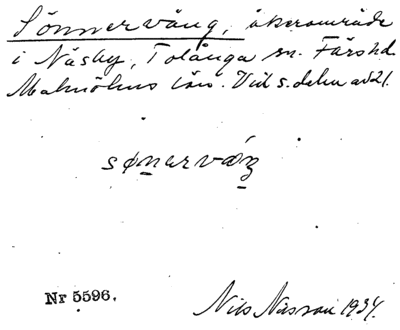 Sönnervång, åkerområde
i Näsby, Tolånga sn. Färs hd.
Malmöhus län. Vid s. delen av 21.
sønərvǽŋ
Nr 5596.
Nils Nässon 1934.